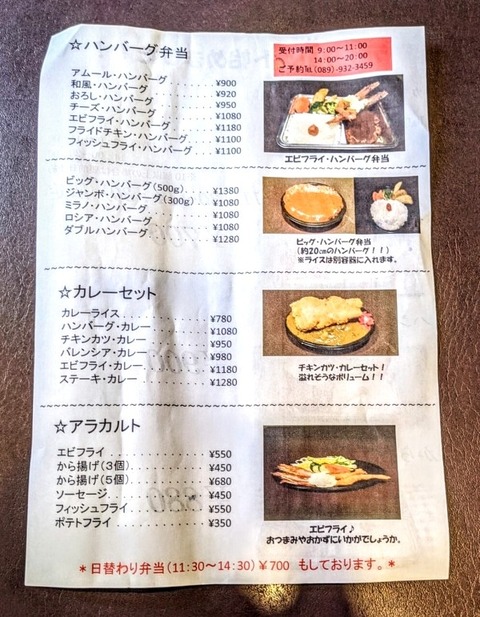 ☆ハンバーグ弁当
受付時間 9:00～11:00
14:00～20:00
ご予約℡(089)-932-3459
アムール・ハンバーグ . . . . . . . ¥900
和風・ハンバーグ . . . . . . . ¥920
おろし・ハンバーグ . . . . . . . ¥950
チーズ・ハンバーグ . . . . . . . ¥1080
エビフライ・ハンバーグ . . . . . . . ¥1180
フライドチキン・ハンバーグ . . . . ¥1100
フィッシュフライ・ハンバーグ . . . . ¥1100
エビフライ・ハンバーグ弁当
ビッグ・ハンバーグ(500g) . . . . ¥1380
ジャンボ・ハンバーグ(300g) . . . . ¥1080
ミラノ・ハンバーグ . . . . . . . ¥1080
ロシア・ハンバーグ . . . . . . . ¥1080
ダブルハンバーグ . . . . . . . ¥1280
ビッグ・ハンバーグ弁当
(約20㎝のハンバーグ！！)
※ライスは別容器に入れます。
☆カレーセット
カレーライス . . . . . . . ¥780
ハンバーグ・カレー . . . . . . . ¥1080
チキンカツ・カレー . . . . . . . ¥950
バレンシア・カレー . . . . . . . ¥980
エビフライ・カレー . . . . . . . ¥1180
ステーキ・カレー . . . . . . . ¥1280
チキンカツ・カレーセット！
溢れそうなボリューム！！
☆アラカルト
エビフライ . . . . . . . ¥550
から揚げ(3個) . . . . . . . ¥450
から揚げ(5個) . . . . . . . ¥680
ソーセージ . . . . . . . ¥450
フィッシュフライ . . . . . . . ¥550
ポテトフライ . . . . . . . ¥350
エビフライ♪
おつまみやおかずにいかがでしょうか。
＊日替わり弁当(11:30～14:30)¥700 もしております。＊